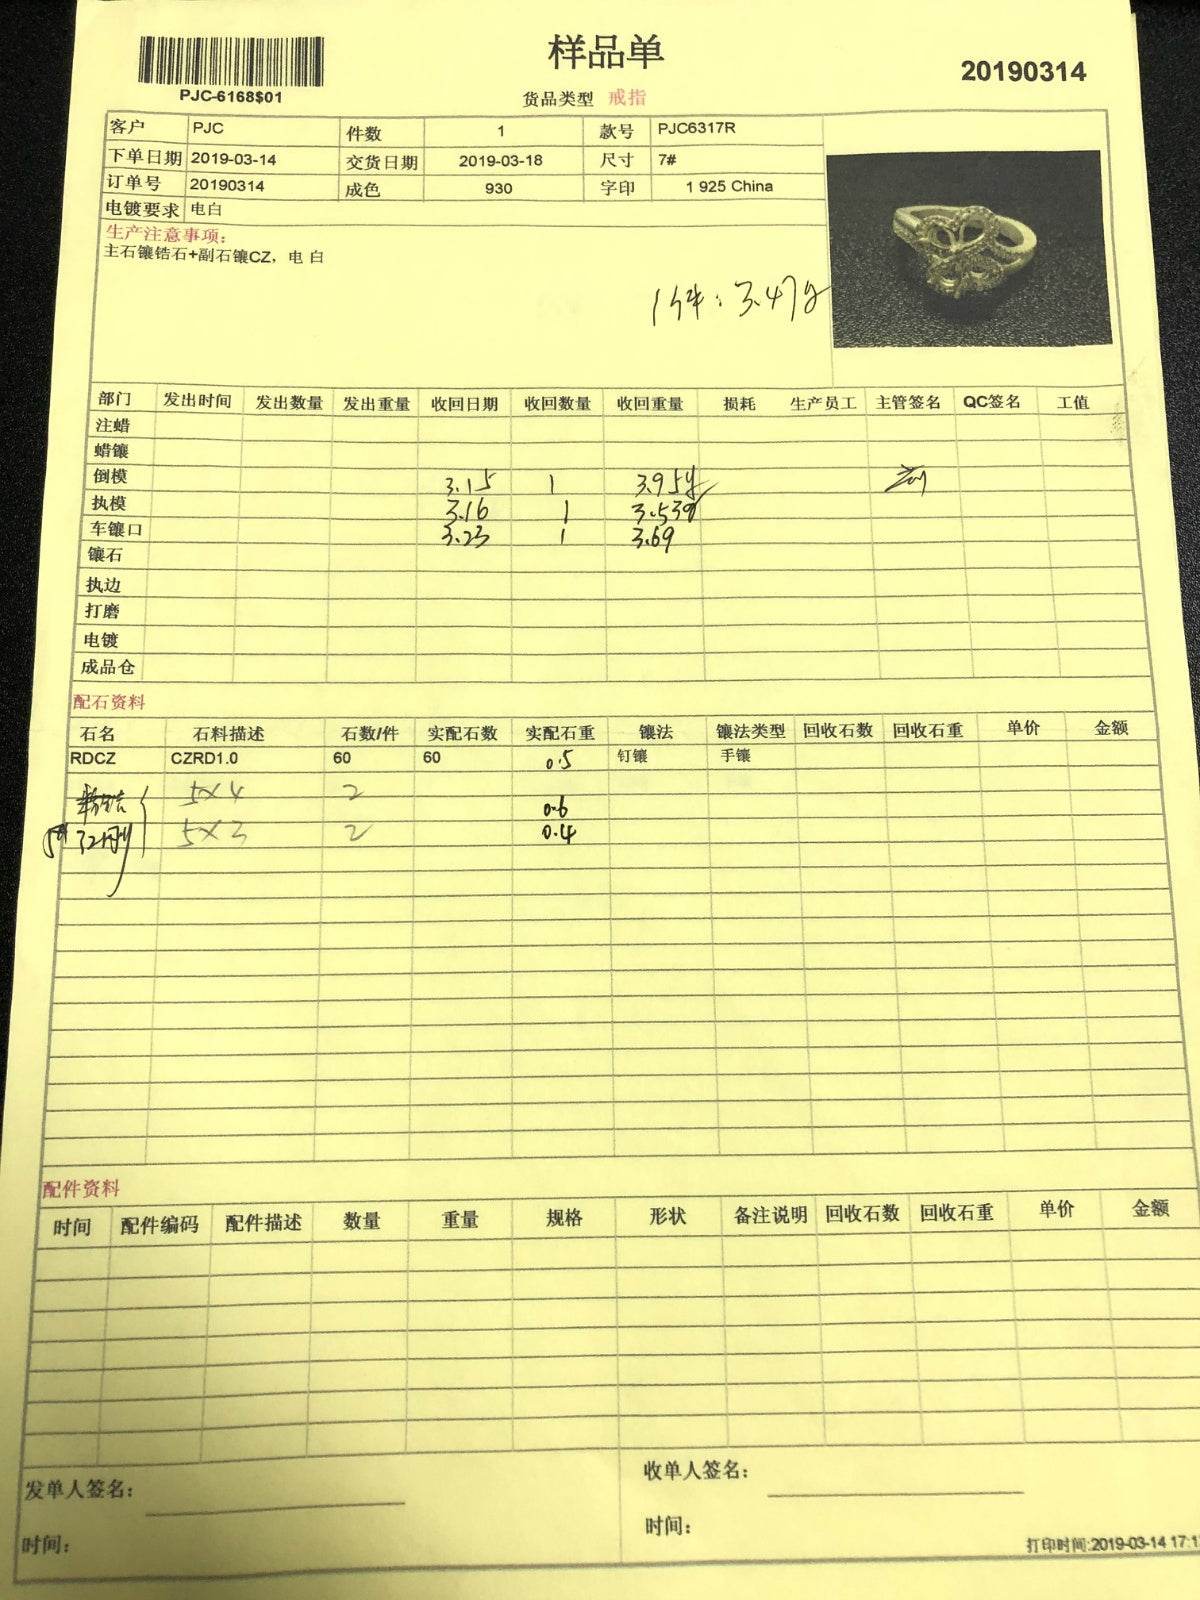 样品单
20190314
PJC-6168$01
货品类型 戒指
客户 PJC 件数 1 款号 PJC6317R
下单日期 2019-03-14 交货日期 2019-03-18 尺寸 7#
订单号 20190314 成色 930 字印 1 925 China
电镀要求 电白
生产注意事项:
主石镶锆石+副石镶CZ，电 白
1件: 3.47g
部门 发出时间 发出数量 发出重量 收回日期 收回数量 收回重量 损耗 生产员工 主管签名 QC签名 工值
注蜡
蜡镶
倒模 3.15 1 3.95g
执模 3.16 1 3.53g
车镶口 3.23 1 3.69
镶石
执边
打磨
电镀
成品仓
配石资料
石名 石料描述 石数/件 实配石数 实配石重 镶法 镶法类型 回收石数 回收石重 单价 金额
RDCZ CZRD1.0 60 60 0.5 钉镶 手镶
5×4 2 0.6
5×3 2 0.4
配件资料
时间 配件编码 配件描述 数量 重量 规格 形状 备注说明 回收石数 回收石重 单价 金额
发单人签名: 收单人签名:
时间: 时间:
打印时间:2019-03-14 17:1